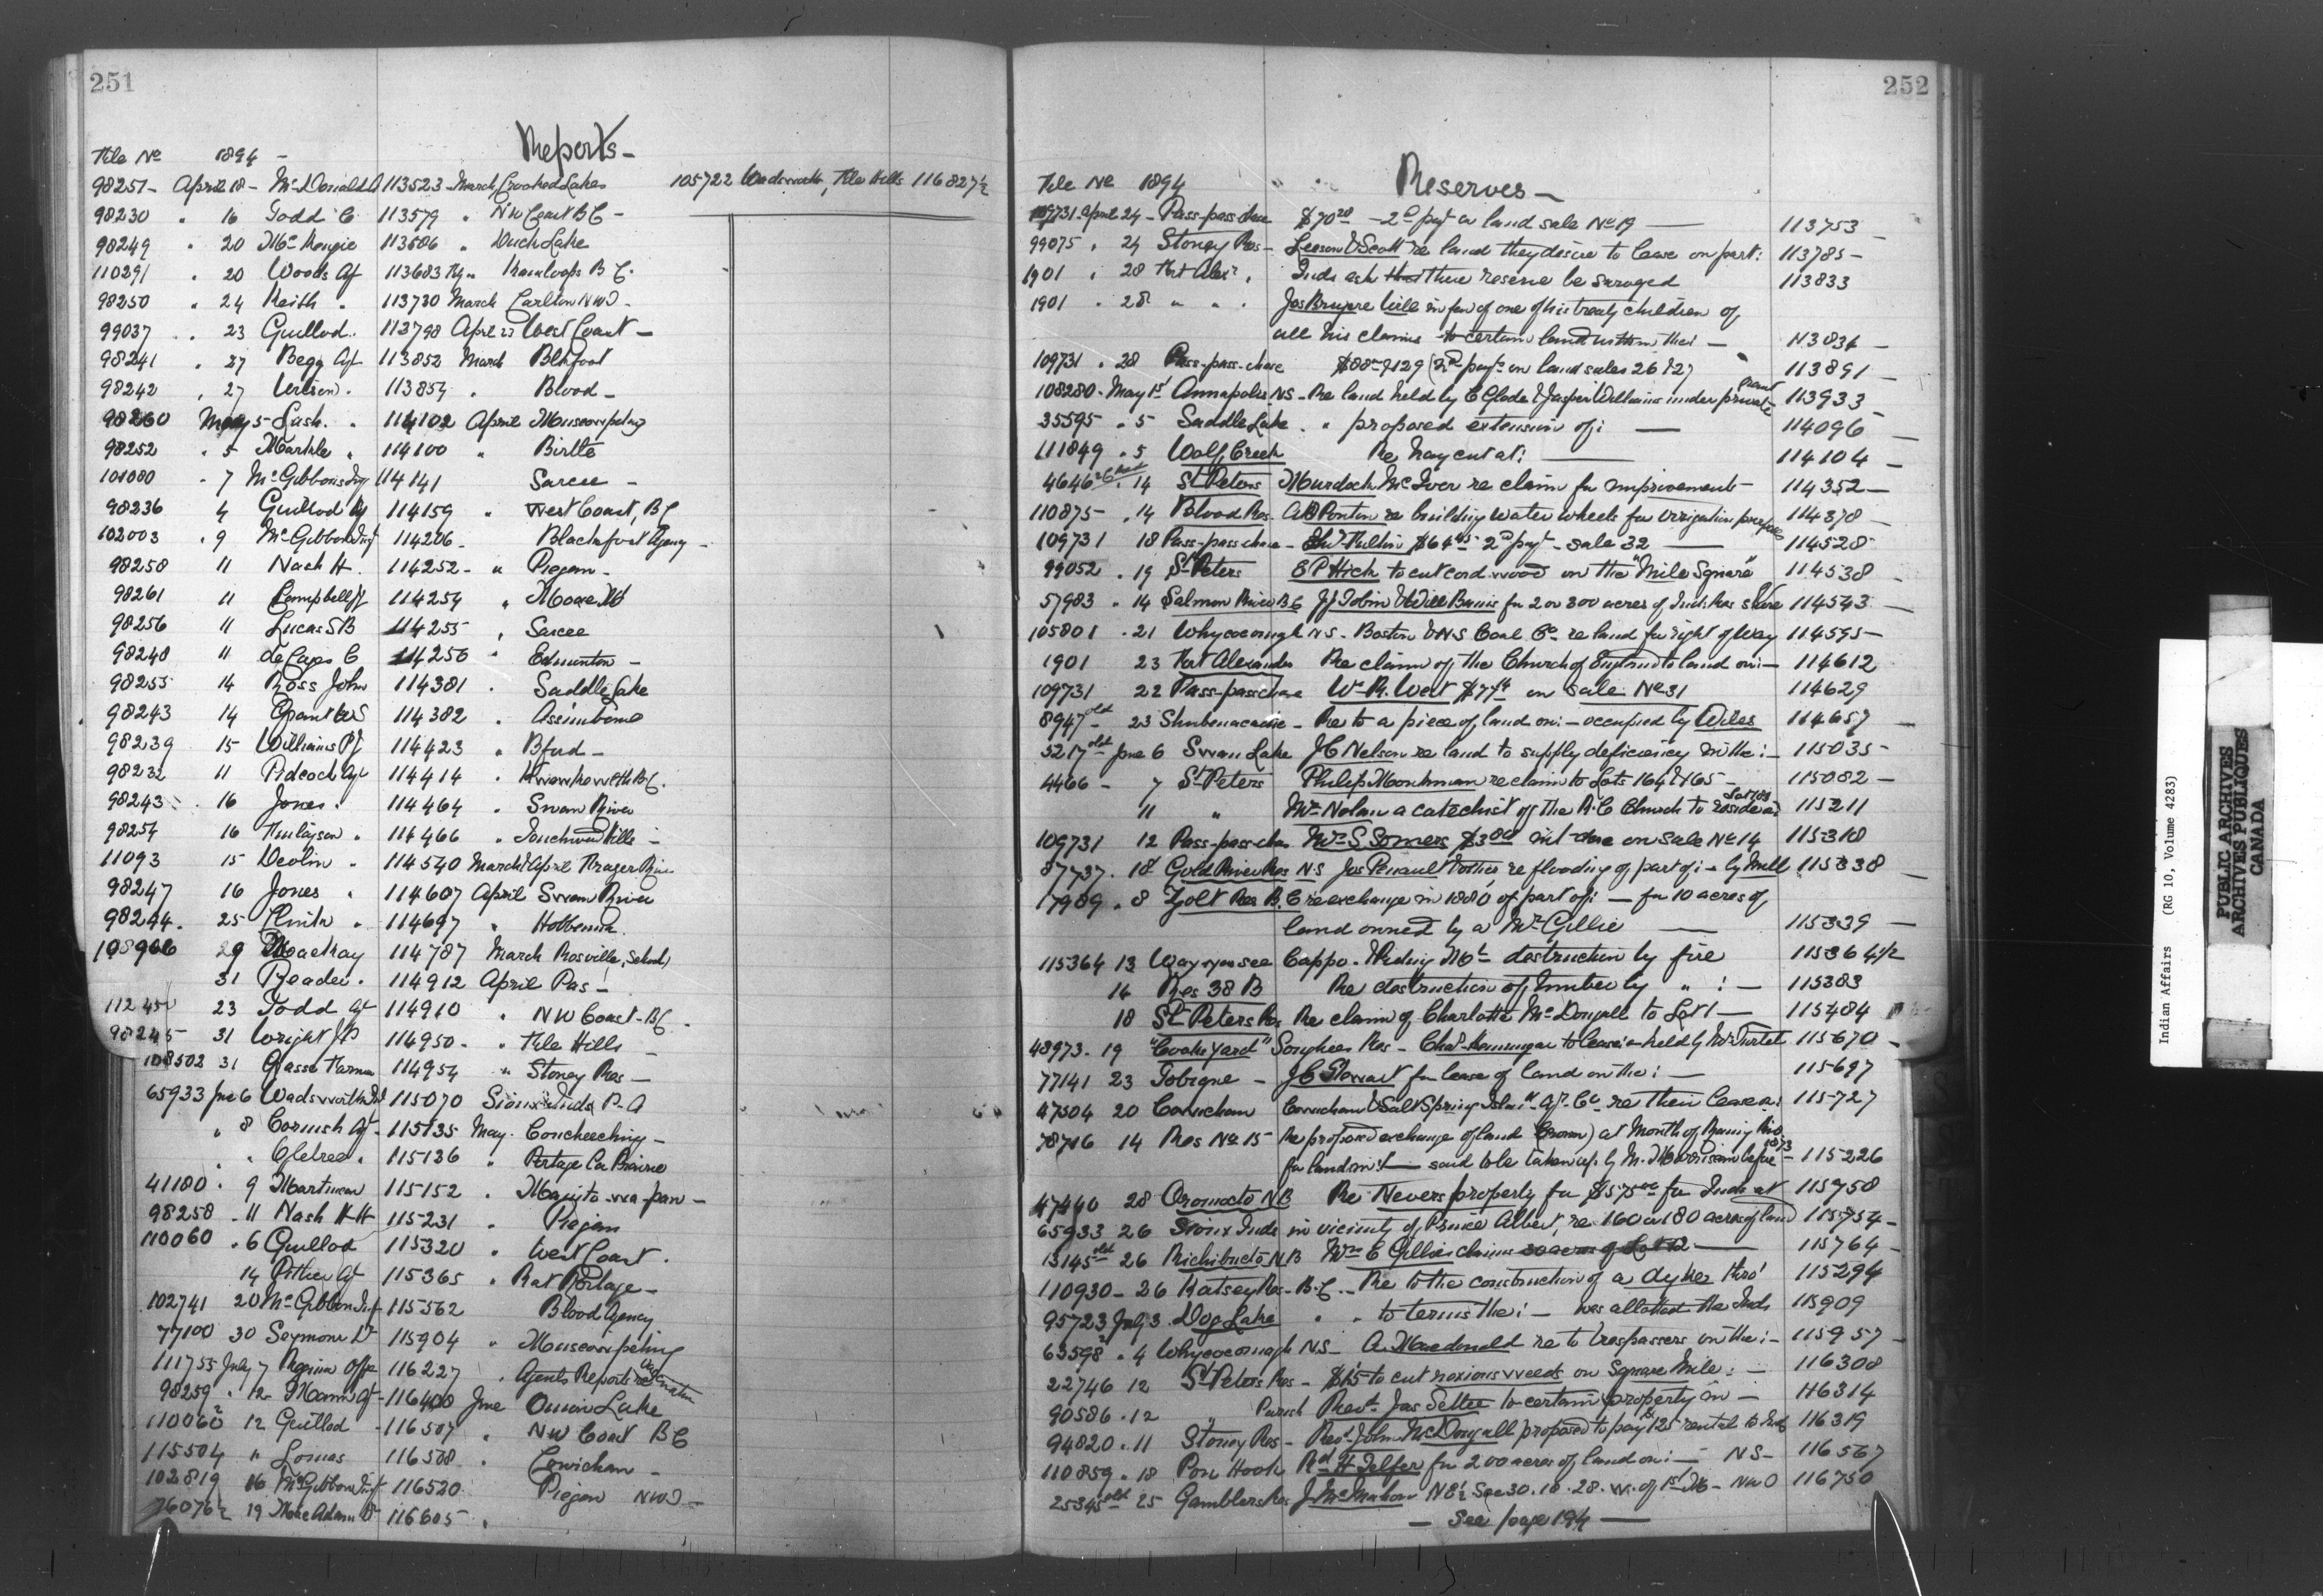 251
Reports -
File No 1894 -
98251 - April 18 - McDonald A 113523 - March Crooked Lakes 105722 Wadsworth, File Hills 116827½
98230 " 16 Todd C 113579 " NW Coast BC -
98249 " 20 McKenzie 113606 " Duck Lake
110291 " 20 Woods Af 113683 " Kamloops B C.
98250 " 24 Keith " 113730 March Carlton NWT -
99037 " 23 Guillod. 113798 April 23 West Coast -
98241 " 27 Begg Af 113852 March Blkfoot
98242 " 27 Wilson. 113854 " Blood -
98260 May 5 Lash. " 114102 April Muscowpetung
98252 " 5 Markle " 114100 " Birtle
101080 " 7 McGibbon Insp 114141 Sarcee -
98236 4 Guillod 114159 " West Coast, BC
102003 " 9 McGibbon Insp 114206 - Blackfoot Agency -
98258 11 Nash H. 114252 - " Piegan -
98261 11 Campbell 114254 "
98256 11 Lucas SB 114255 " Sarcee
98248 11 de Cazes C 114256 " Edmonton -
98255 14 Ross John 114381 " Saddle Lake
98243 14 Grant WS 114382 " Assiniboine
98239 15 Williams PJ 114423 " Bford -
98232 11 Pidcock Af 114414 " Kwawkewlth BC.
98243 " 16 Jones " 114464 " Swan River
98254 16 Finlayson " 114466 " Touchwood Hills -
11093 15 Devlin " 114540 March & April Frazer River
98247 16 Jones " 114607 April Swan River
98244. 25 114697 " Hobbema.
29 MacKay 114787 March Rossville, School
31 Reader. 114912 April Pas -
23 Todd Af 114910 " NW Coast BC.
98245 31 Wright JP 114950 - " File Hills -
108502 31 Grasse Herman 114954 " Stoney Res -
65933 June 6 Wadsworth 115070 Sioux Inds P. A
" 8 Cornish Af - 115135 May. Couchiching -
" " Ogletree " 115136 " Portage La Prairie
41180 " 9 Martineau 115152 " Manito-wa-paw -
98258 - 11 Nash H H 115231 " Piegan
110060 . 6 Guillod 115320 " West Coast.
14 Pither Af 115365 " Rat Portage -
102741 20 McGibbon Insp 115562 Blood Agency
77100 30 Seymour Dr 115904 " Muscowpetung
111755 July 7 Regina Offe 116227 " Agents Reports re Vaccination
98259 " 12 Mann Af - 116408 June Onion Lake
110060² 12 Guillod - 116507 " NW Coast BC
115504 " Lomas 116508 " Cowichan -
102819 16 McGibbon Insp 116520 Piegan NWT -
76076½ 19 MacAdam Dr 116605 "
252
Reserves -
File No 1894
109731 April 24 - Pass-pass-chase $70 20 - 2d payt on land sale No 19 113753 -
99075 " 24 Stoney Res - Leeson & Scott re land they desire to lease on part: 113785 -
1901 " 28 Fort Alexr " Inds ask that their reserve be surveyed 113833
1901 " 28 " " " Jas Bruyere Will in fav of one of his treaty children of
all his claims to certain land within the: - 113834 -
109731 " 28 Pass-pass-chase $88 & 129 (2nd payts on land sales 26 & 27 113891 -
108280 - May 1st Annapolis NS - Re land held by C Glode & Jasper Williams under private grant 113933
35595 " 5 Saddle Lake " proposed extension of: - 114096 -
111849 " 5 Wolf Creek Re Hay cut at: 114104 -
4646 " 14 St Peters Murdoch McIver re claim for improvements - 114352 -
110875 - " 14 Blood Res. AB Ponton re building water wheels for irrigation purposes 114378 -
109731 18 Pass-pass-chase - $64 45 2d payt - sale 32 - 114528 -
99052 " 19 St Peters E P Hick to cut cord wood on the "Mile Square" 114538 -
57983 " 14 Salmon River BC JJ Tobin & Will Bunis for 2 or 300 acres of Inds Res 114543 -
105801 " 21 Whycocomagh N S - Boston & NS Coal Co re land for right of way 114595 -
1901 23 Fort Alexander Re claim of the Church of England to land on: - 114612
109731 22 Pass-pass-chase Wm R. West $77 on sale No 31 114629
8947 old - 23 Shubenacadie - Re to a piece of land on: - occupied by Wiles 114657 -
5217 old - June 6 Swan Lake J C Nelson re land to supply deficiency in the: - 115035 -
4466 - 7 St Peters Philip Monkman re claim to Lots 164 & 165 - 115082 -
11 " Mr Nolan a catechist of the R. C Church to reside on Lot 115211
109731 12 Pass-pass-chase Mr S Somers $3 int due on sale No 14 115310
87737. 18 Gold River Res N S Jas Penault & others re flooding of part of: - by Mill 115338 -
17989 " 8 Zolt Res B. C re exchange in 1880 of part of: - for 10 acres of
land owned by a Mr Gillie - 115339 -
115364 13 Way way see Cappo. Riding Mt destruction by fire 115364½
14 Res 38 B Re destruction of timber by " : - 115383
18 St Peters Res Re claim of Charlotte McDougall to Lot 1 - 115484
48973 - 19 "Coake Yard" Songhees Res - to lease: held by Mr Turtel 115670 -
77141 23 Tobique - J C Stewart for lease of land on the: - 115697
47504 20 Cowichan Cowichan & Salt Spring Island Af. Co re their lease: 115727
78716 14 Res No 15 Re proposed exchange of land (Crown) at Mouth of Rainy Riv.
for land in: - said to be taken up by M. Morrison before 1873 - 115226
47440 28 Oromocto N B Re Nevers property for $575 00 for Inds at 115758
65933 26 Sioux Inds in vicinity of Prince Albert, re 160 or 180 acres of land 115754 -
13145 old 26 Richibucto N B Wm C Gillies claims 30 acres of Lot 12 - 115764 -
110930 - 26 Katsey Res - B. C. - Re to the construction of a dyke thro' 115294
95723 July 3 Dog Lake " " to terms the: - was allotted the Inds 115909
63598² " 4 Whycocomagh N S - A. Macdonald re to trespassers on the: - 115957 -
22746 12 St Peters Res - $15 to cut noxious weeds on Square Mile: - 116308
90586 . 12 " Parish Revd. Jas Settee to certain property on - 116314
94820 . 11 Stoney Res - Revd John McDougall proposed to pay $125 rental to Inds 116319
110859 . 18 Pon Hook Rd H Telfer for 200 acres of land on: - NS - 116567
25345 old 25 Gamblers Res J McMahon N E½ Sec 30. 18. 28. W. of 1st M - NWT 116750
- See page 194 -
Indian Affairs (RG 10, Volume 4283)
PUBLIC ARCHIVES
ARCHIVES PUBLIQUES
CANADA